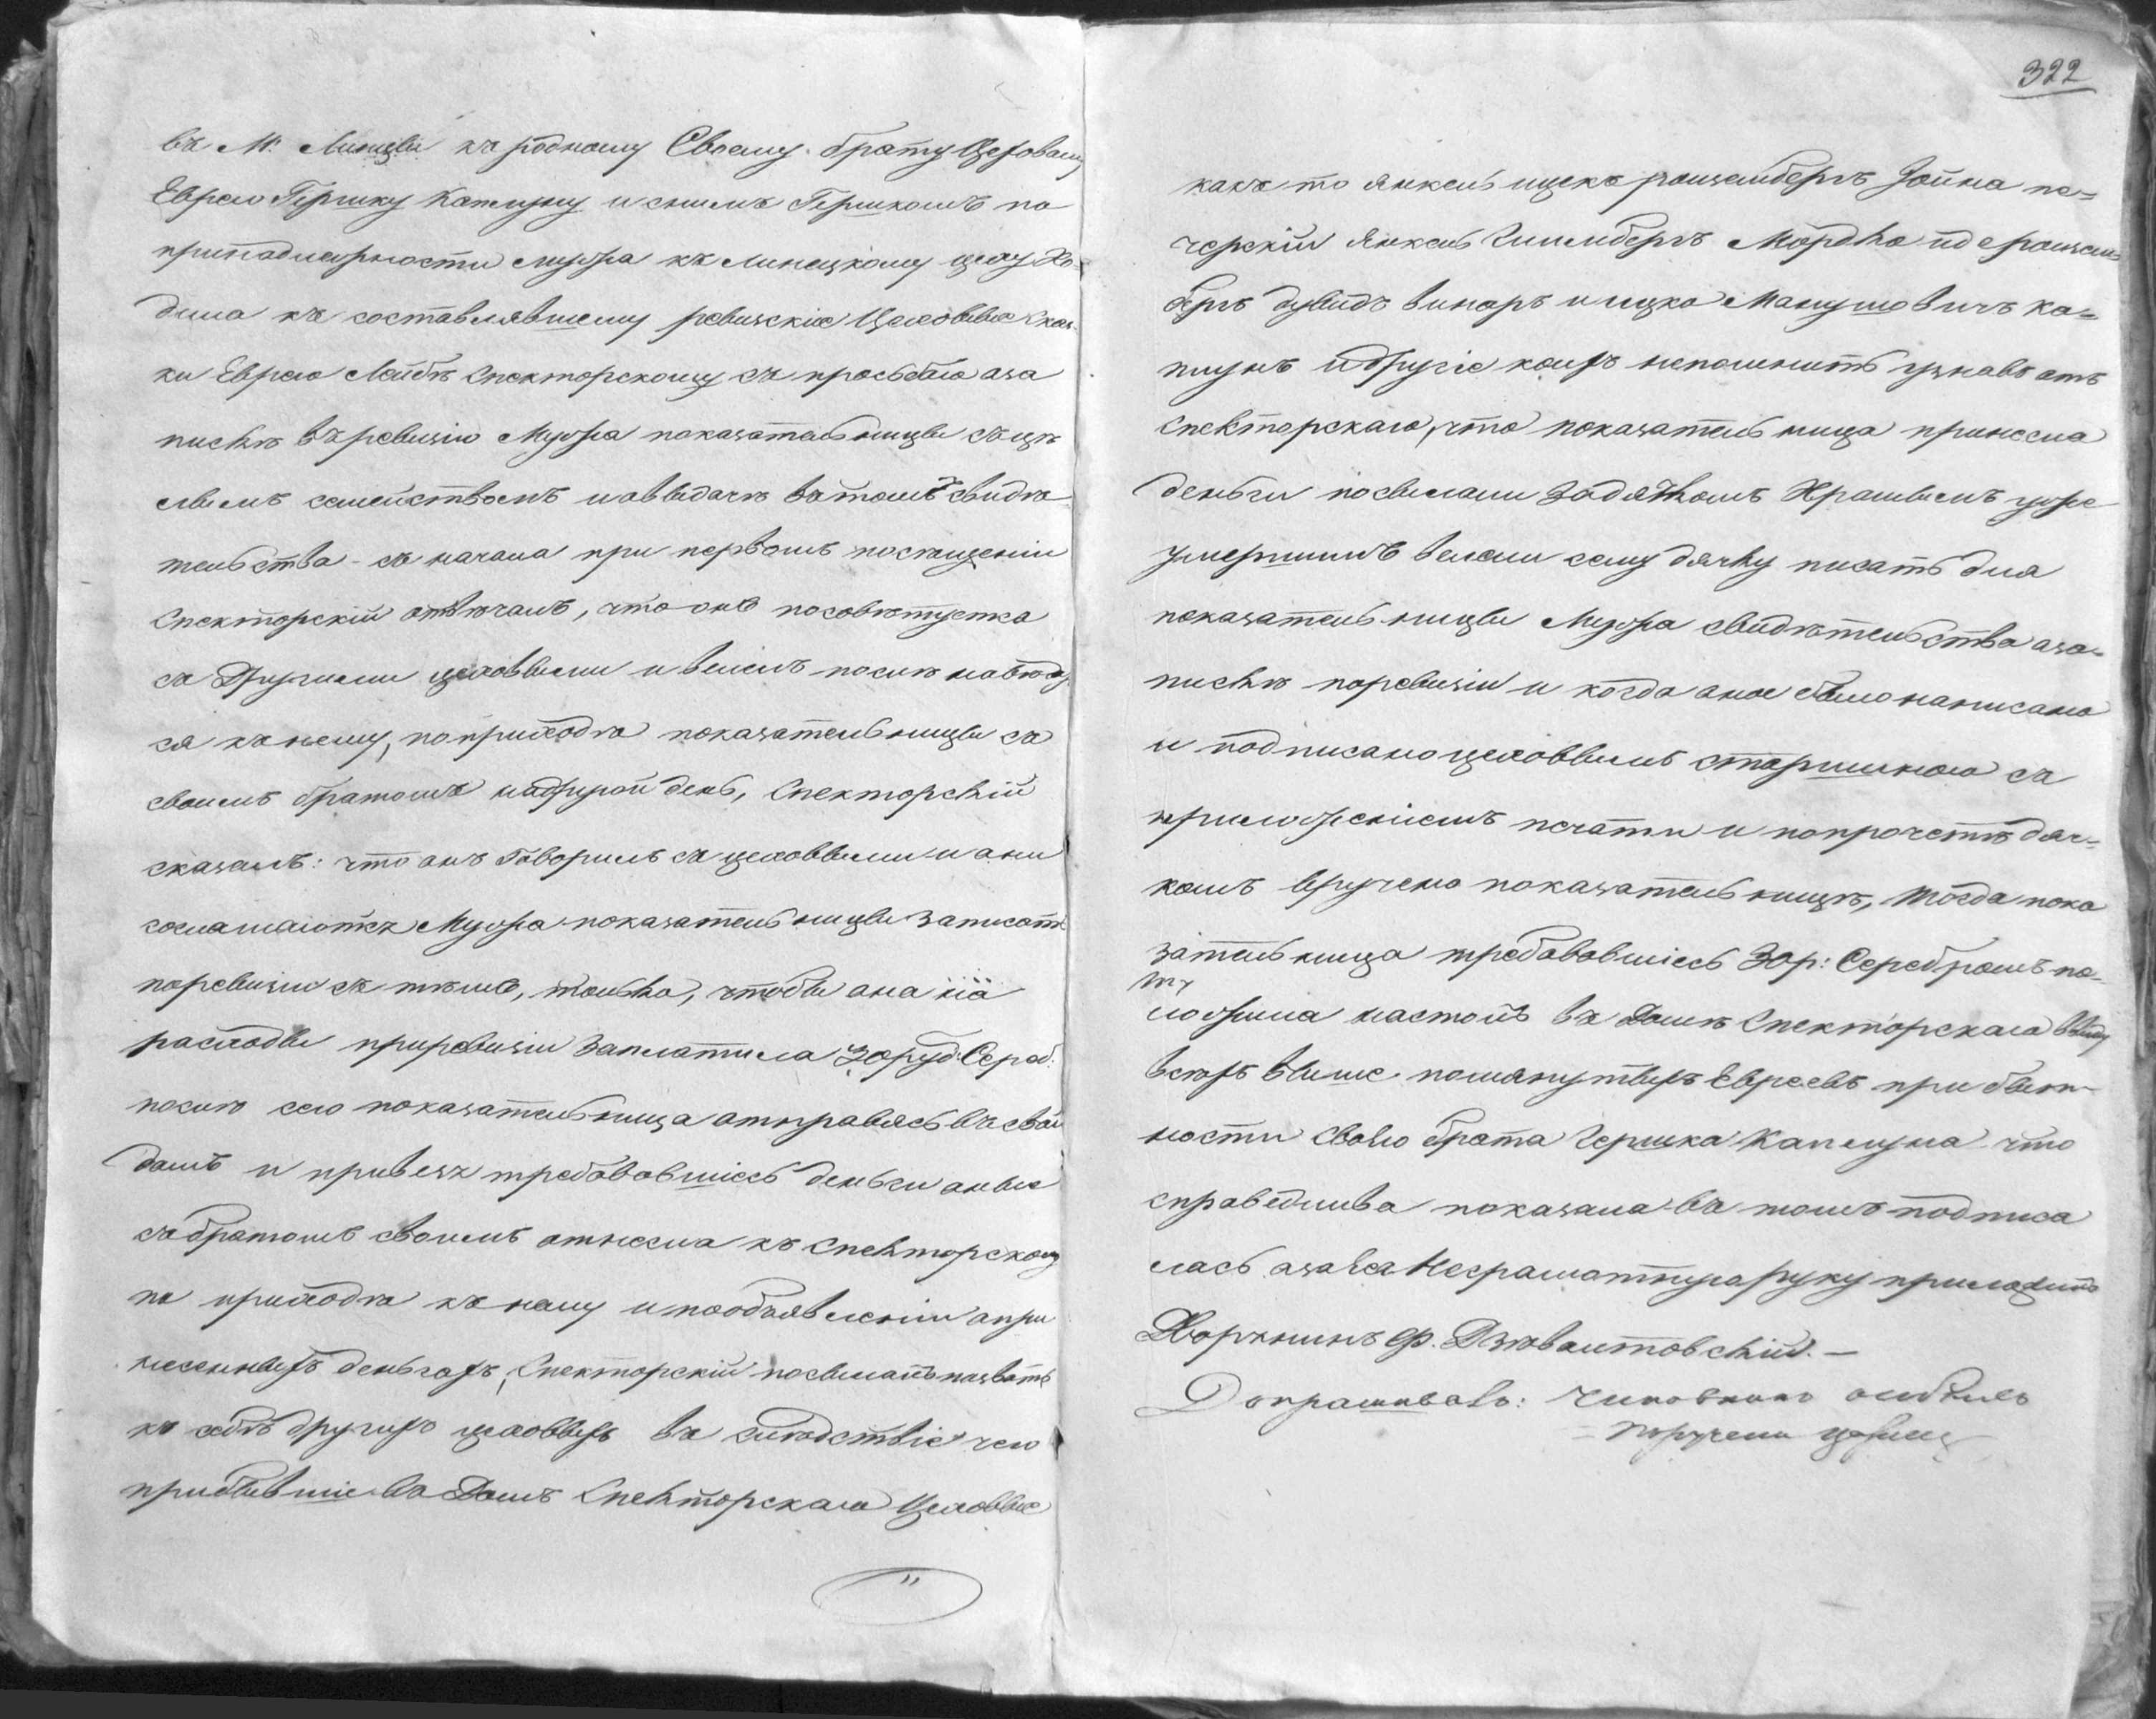 въ М. Липцы къ родному Своему брату Цеховому
Еврею Гершку Каплуну и снимъ Гершкомъ по
принадлежности мужа къ Липецкому цеху Хо-
дила къ составлявшему ревизскіе Цеховые Сказ-
ки Еврею Лейбѣ Спекторскому съ просьбою аза
пискѣ въ ревизію Мужа показательницы съ цѣ
лымъ семействомъ и авыдачѣ въ томъ свидѣ
тельства - съ начала при первомъ посѣщеніи
Спекторскій отвѣчалъ, что онъ посовѣтуется
съ Другими цеховыми и велелъ послѣ
ся къ нему, по приходѣ показательницы съ
своимъ братомъ надругой день, Спекторскій
сказалъ: что анъ Говорилъ съ цеховыми и ани
соглашаются Мужа показательницы записать
поревизіи съ тѣмъ, только, чтобы ана на
расходы приревизіи Заплатила 30 руб Сереб:
послѣ сего показательница атправясь въ свой
домъ и привезя требовавшіесь деньги аные
съ братомъ своимъ атнесла къ Спекторскому
по приходѣ къ нему и пообъявленіи апри
несенныхъ деньгахъ, Спекторскій посылалъ пазвать
къ себѣ другихъ цеховыхъ въ слѣдствіе чего
прибывшіе въ Домъ Спекторскаго Цеховые
322
какъ то Янкель ицекъ розенбергъ Іойна пе=
черскій Янкель Гинзбергъ Мордко
бергъ дувидъ винаръ и ицко Манушовичъ Ка=
плунъ идругіе коихъ непомнитъ узнавъ отъ
Спекторскаго, что показательница принесла
деньги посылали Задячкомъ Храмымъ уже
умершимъ велели сему дячку писать для
показательницы Мужа свидѣтельства аза=
пискѣ поревизіи и когда аное было написано
и подписано цеховымъ старшиною съ
приложеніемъ печати и попрочетѣ дяч=
комъ вручено показательницѣ, тогда пока
зательница требовавшіесь 30 р: Серебромъ по=
ложила настолъ въ Домѣ Спекторскаго ввиду
всехъ выше помянутыхъ Евреевъ при быт-
ности своего брата Гершка Каплуна что
справедливо показала въ томъ подписа
лась азаеё Неграмотную руку приложилъ
Дворянинъ Ф. Дзевалтовскій. —
Допрашивалъ: Чиновникъ особыхъ
порученій